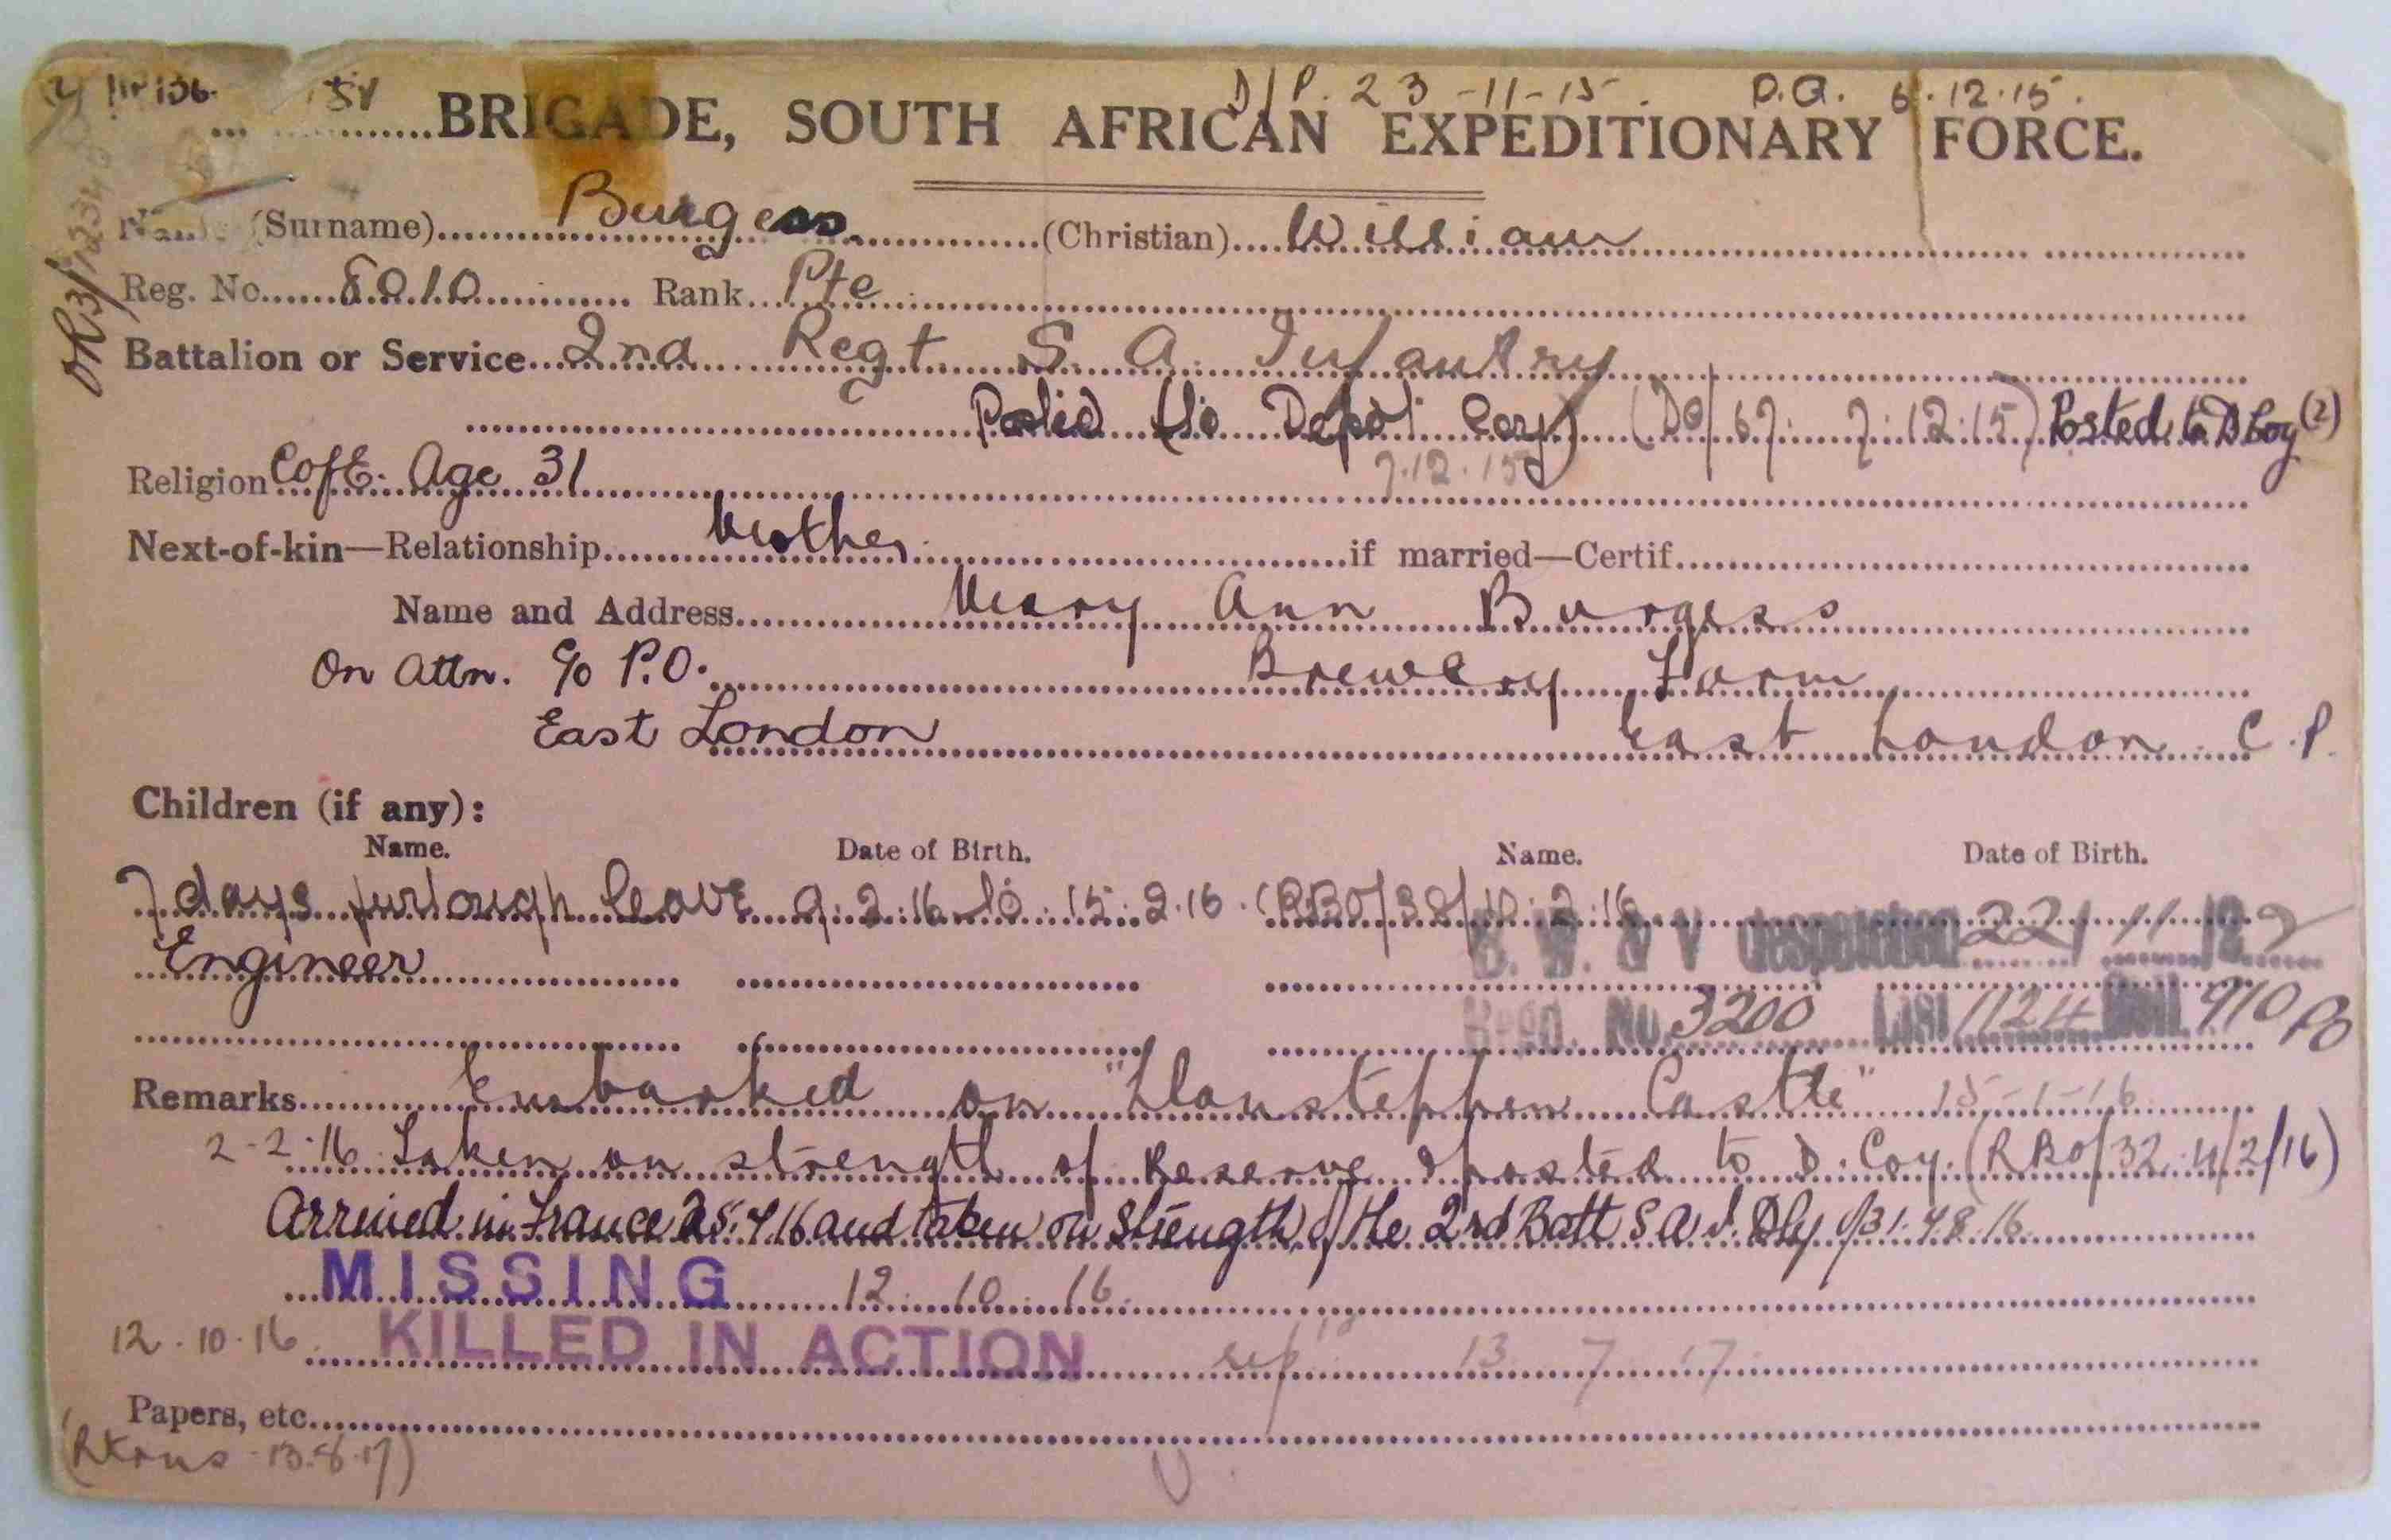 D/P. 23-11-15. D.Q. 6.12.15.
BRIGADE, SOUTH AFRICAN EXPEDITIONARY FORCE.
(Surname) Burgess (Christian) William
Reg. No. 8010 Rank Pte
Battalion or Service 2nd Regt S. A. Infantry
Posted (to Depot Coy) (DO/67. 7.12.15) Posted to D Coy (2)
7.12.15
Religion C of E. Age 31
Next-of-kin—Relationship Mother if married—Certif.
Name and Address Mary Ann Burgess
On Attn. c/o P.O. Brewery Farm
East London East London C.P.
Children (if any):
Name. Date of Birth. Name. Date of Birth.
7 days furlough leave 9.2.16 to 15.2.16. (RBO/38/10.2.16
B. W. & V despatched 22/11/22
Engineer
Regd. No. 3200 List 1124 910 PO
Remarks Embarked on "Llanstephen Castle" 15-1-16
2-2-16 Taken on strength of Reserve & posted to D. Coy. (RBO/32. 4/2/16)
Arrived in France 25.7.16 and taken on Strength of the 2nd Batt S A I.
MISSING 12. 10. 16.
12.10.16 KILLED IN ACTION rep 13 7 17
Papers, etc.
13.8.17)